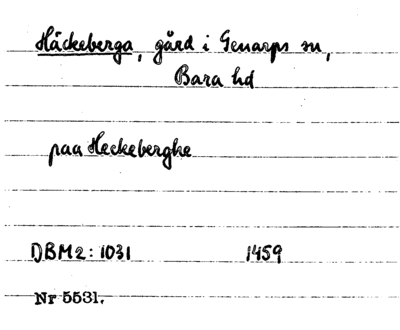 Häckeberga, gård i Genarps sn,
Bara hd
paa Heckeberghe
DBM2: 1031 1459
Nr 5531.